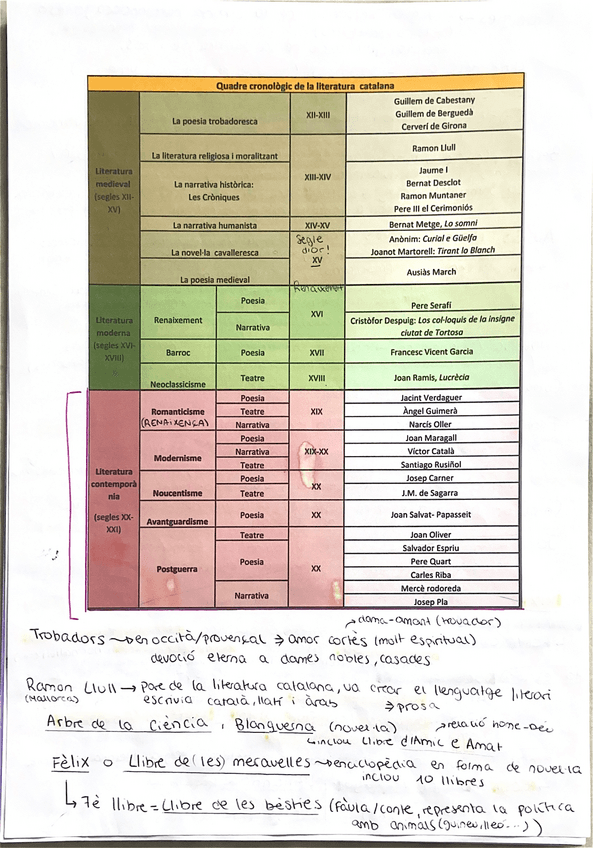 Quadre cronològic de la literatura catalana
Literatura medieval (segles XII-XV)
La poesia trobadoresca
XII-XIII
Guillem de Cabestany
Guillem de Berguedà
Cerverí de Girona
La literatura religiosa i moralitzant
XIII-XIV
Ramon Llull
La narrativa històrica:
Les Cròniques
Jaume I
Bernat Desclot
Ramon Muntaner
Pere III el Cerimoniós
La narrativa humanista
XIV-XV
Bernat Metge, Lo somni
La novel·la cavalleresca
Segle
d'or!
XV
Anònim: Curial e Güelfa
Joanot Martorell: Tirant lo Blanch
La poesia medieval
Ausiàs March
Literatura moderna (segles XVI-XVIII)
Renaixement
Poesia
XVI
Pere Serafí
Narrativa
Cristòfor Despuig: Los col·loquis de la insigne
ciutat de Tortosa
Barroc
Poesia
XVII
Francesc Vicent Garcia
Neoclassicisme
Teatre
XVIII
Joan Ramis, Lucrècia
Literatura contemporània
(segles XX-XXI)
Romanticisme
(RENAIXENÇA)
Poesia
XIX
Jacint Verdaguer
Teatre
Àngel Guimerà
Narrativa
Narcís Oller
Modernisme
Poesia
XIX-XX
Joan Maragall
Narrativa
Víctor Català
Teatre
Santiago Rusiñol
Noucentisme
Poesia
XX
Josep Carner
Teatre
J.M. de Sagarra
Avantguardisme
Poesia
XX
Joan Salvat- Papasseit
Postguerra
Teatre
XX
Joan Oliver
Poesia
Salvador Espriu
Pere Quart
Carles Riba
Narrativa
Mercè rodoreda
Josep Pla
dama-amant (trovador)
Trobadors → en occità/provençal → amor cortès (molt espiritual)
devoció eterna a dames nobles, casades
Ramon Llull → pare de la literatura catalana, va crear el llenguatge literari
(Mallorca) escrivia català, llatí i àrab → prosa
Arbre de la Ciència i Blanquerna (novel·la) → relació home-déu
inclou Llibre d'Amic e Amat
Fèlix o Llibre de(les) meravelles → enciclopèdia en forma de novel·la
inclou 10 llibres
7è llibre = Llibre de les bèsties (faula/conte, representa la política
amb animals (guineu, lleó...))